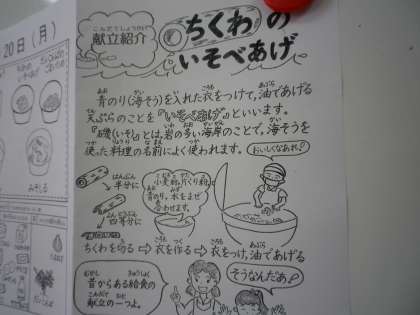 20日（月）
こんだてしょうかい
献立紹介
ちくわの
いそべあげ
青のり(海そう)を入れた衣をつけて、油であげる
天ぷらのことを『いそべあげ』といいます。
『磯(いそ)』とは、岩の多い海岸のことで、海そうを
使った料理の名前によく使われます。
おいしくなあれ♪
半分に
四等分に
小麦粉、片くり粉、
青のり、水をまぜ
合わせます。
ちくわを切る⇨衣を作る⇨衣をつけ、油であげる
昔からある給食の
献立の一つよ。
そうなんだあ
みそしる